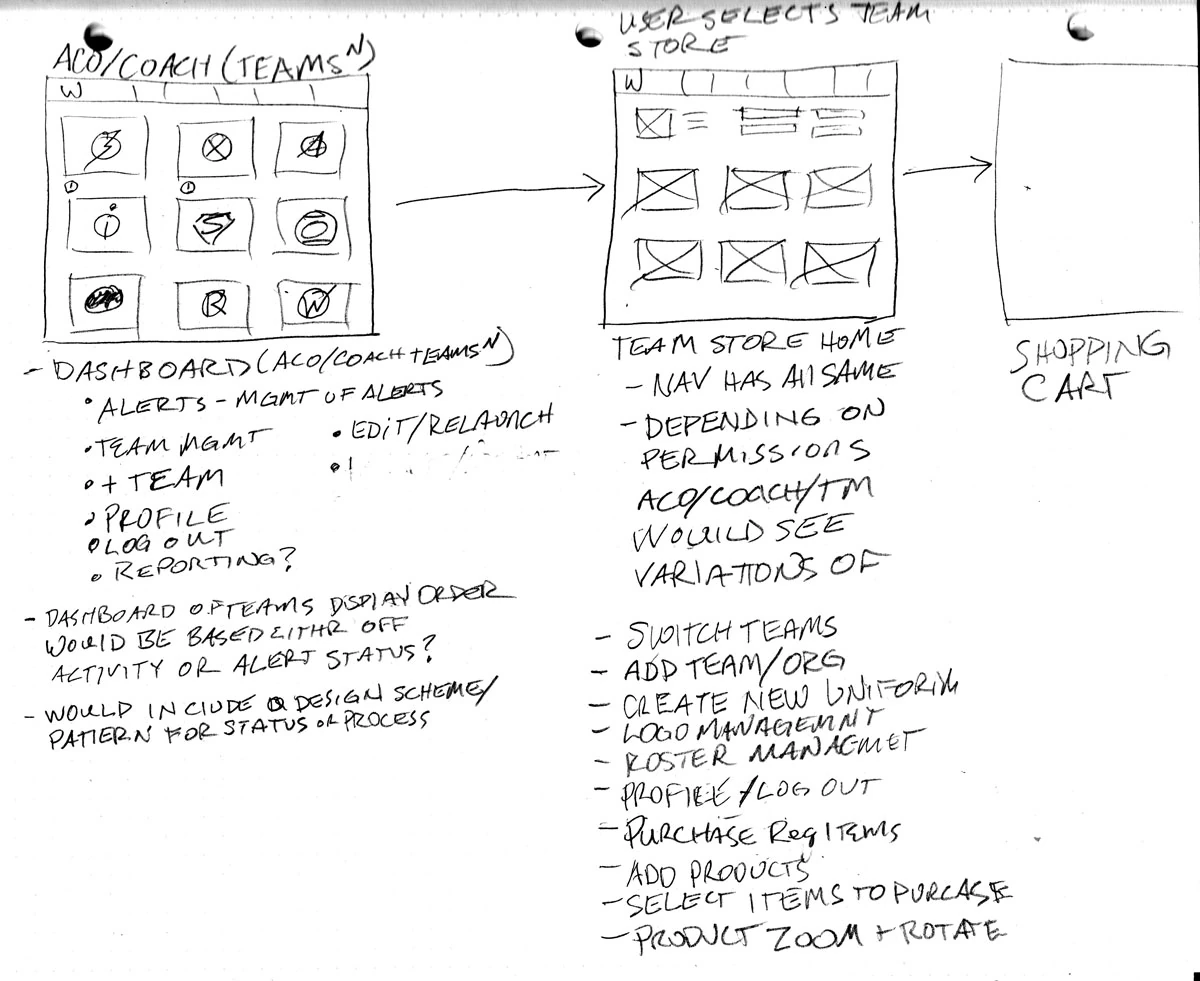 ACO/COACH (TEAMS^N)
W
3
X
A
i
S
O
R
W
- DASHBOARD (ACO/COACH + TEAMS^N)
• ALERTS - MGMT OF ALERTS
• TEAM MGMT
• EDIT/RELAUNCH
• + TEAM
• PROFILE
• LOG OUT
• REPORTING?
- DASHBOARD OF TEAMS DISPLAY ORDER
WOULD BE BASED EITHR OFF
ACTIVITY OR ALERT STATUS?
- WOULD INCLUDE A DESIGN SCHEME/
PATTERN FOR STATUS OF PROCESS
USER SELECTS TEAM
STORE
W
TEAM STORE HOME
- NAV HAS All SAME
- DEPENDING ON
PERMISSIONS
ACO/COACH/TM
WOULD SEE
VARIATIONS OF
- SWITCH TEAMS
- ADD TEAM/ORG
- CREATE NEW UNIFORM
- LOGO MANAGEMNT
- ROSTER MANAGMET
- PROFILE/LOG OUT
- PURCHASE Reg ITEMS
- ADD PRODUCTS
- SELECT ITEMS TO PURCASE
- PRODUCT ZOOM + ROTATE
SHOPPING
CART